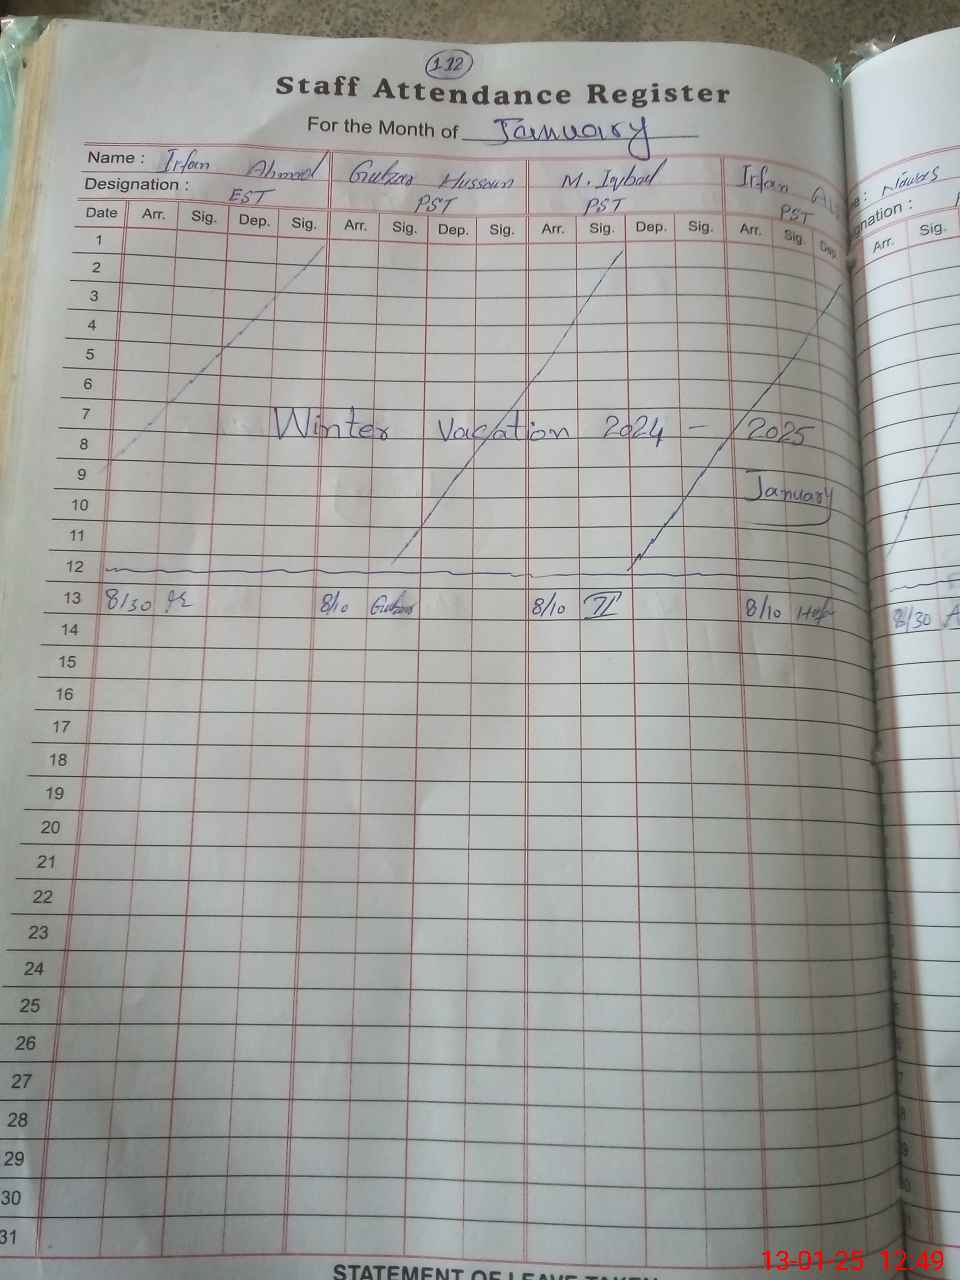 112
Staff Attendance Register
For the Month of January
Name : Irfan Ahmad Gulzar Hussain M. Iqbal Irfan
Designation : EST PST PST PST
Date Arr. Sig. Dep. Sig. Arr. Sig. Dep. Sig. Arr. Sig. Dep. Sig. Arr. Sig. Dep. Arr. Sig.
1
2
3
4
5
6
7
Winter Vacation 2024 - 2025
8
9
January
10
11
12
13 8/30 8/10 Gulzar 8/10 8/10 8/30
14
15
16
17
18
19
20
21
22
23
24
25
26
27
28
29
30
31
STATEMENT OF LEAVE TAKEN
13-01-25 12:49